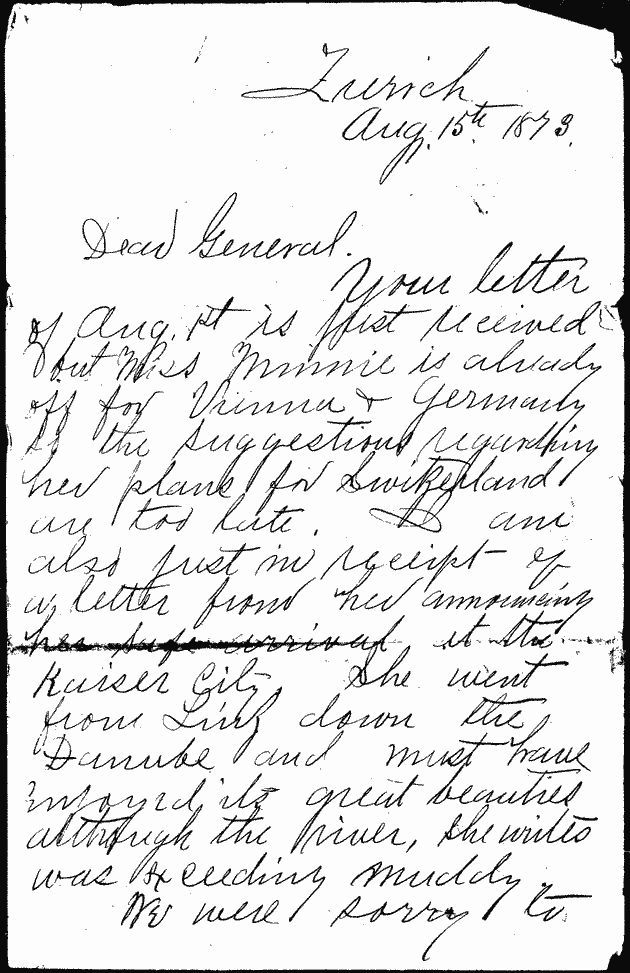 Zurich
Aug. 15th 1873.
Dear General.
Your letter
of Aug. 1st is just received
but Miss Minnie is already
off for Vienna & Germany
So the suggestions regarding
her plans for Switzerland
are too late. I am
also just in receipt of
a letter from her announcing
her safe arrival at the
Kaiser City. She went
from Linz down the
Danube and must have
enjoyed its great beauties
although the river, she writes
was exceeding muddy.
We were sorry to